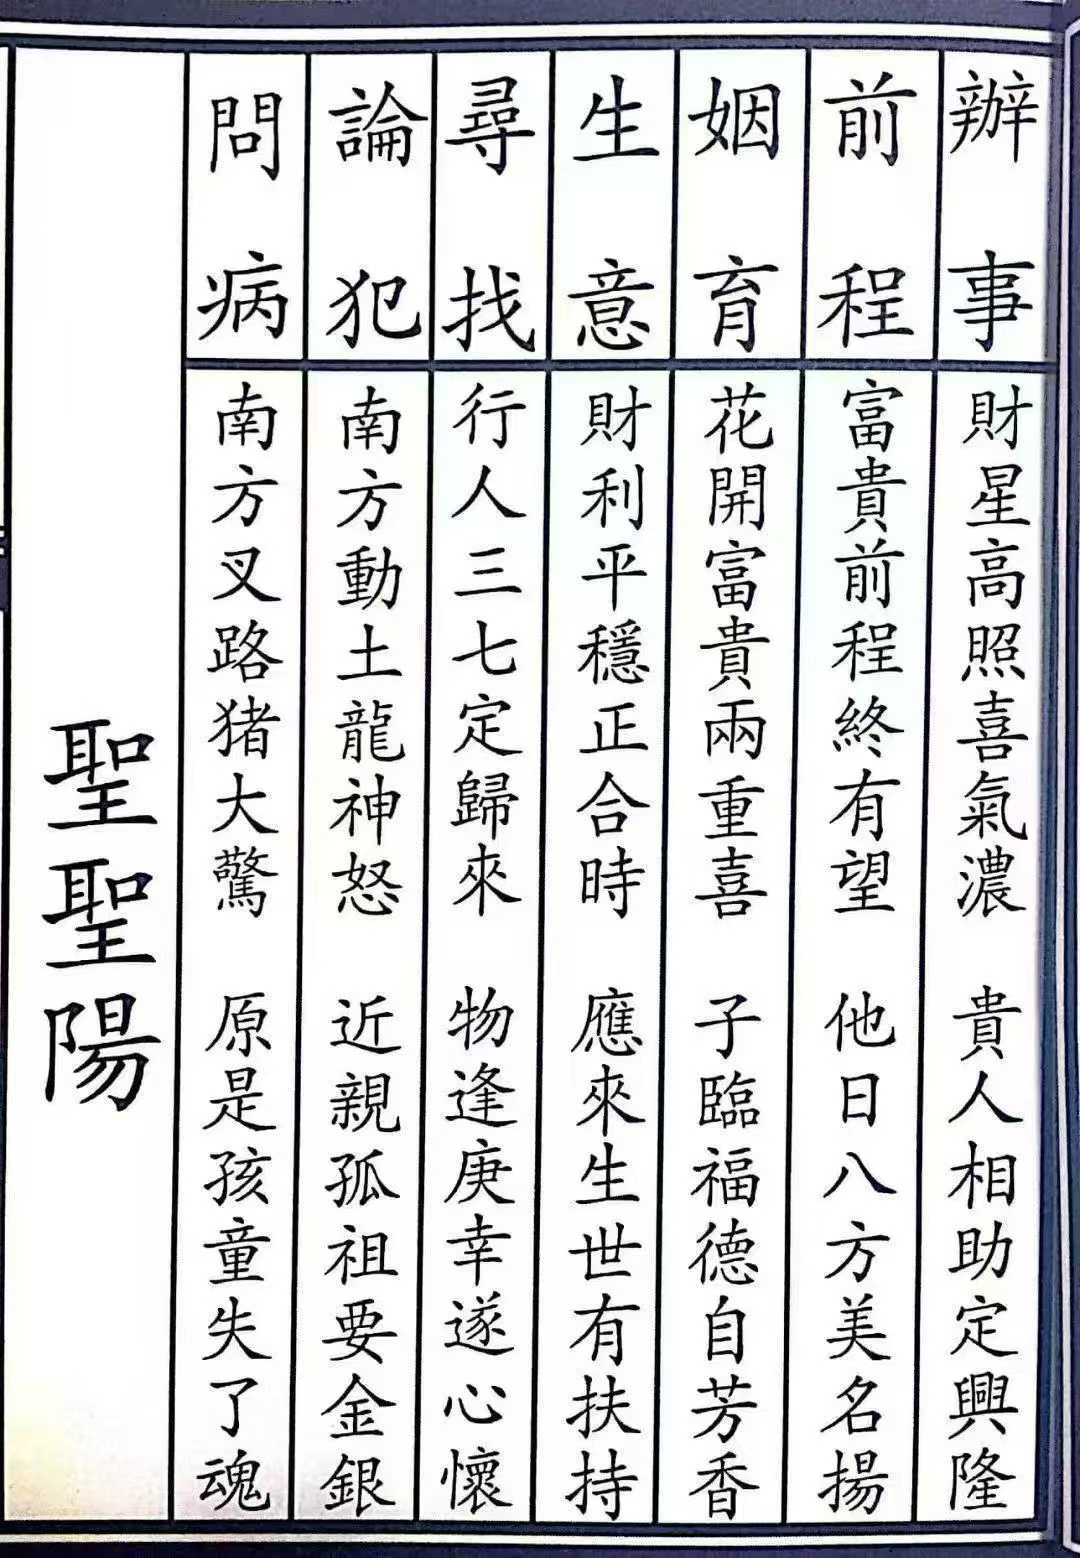 辦事 財星高照喜氣濃 貴人相助定興隆
前程 富貴前程終有望 他日八方美名揚
姻育 花開富貴兩重喜 子臨福德自芳香
生意 財利平穩正合時 應來生世有扶持
尋找 行人三七定歸來 物逢庚幸遂心懷
論犯 南方動土龍神怒 近親孤祖要金銀
問病 南方叉路猪大驚 原是孩童失了魂
聖聖陽